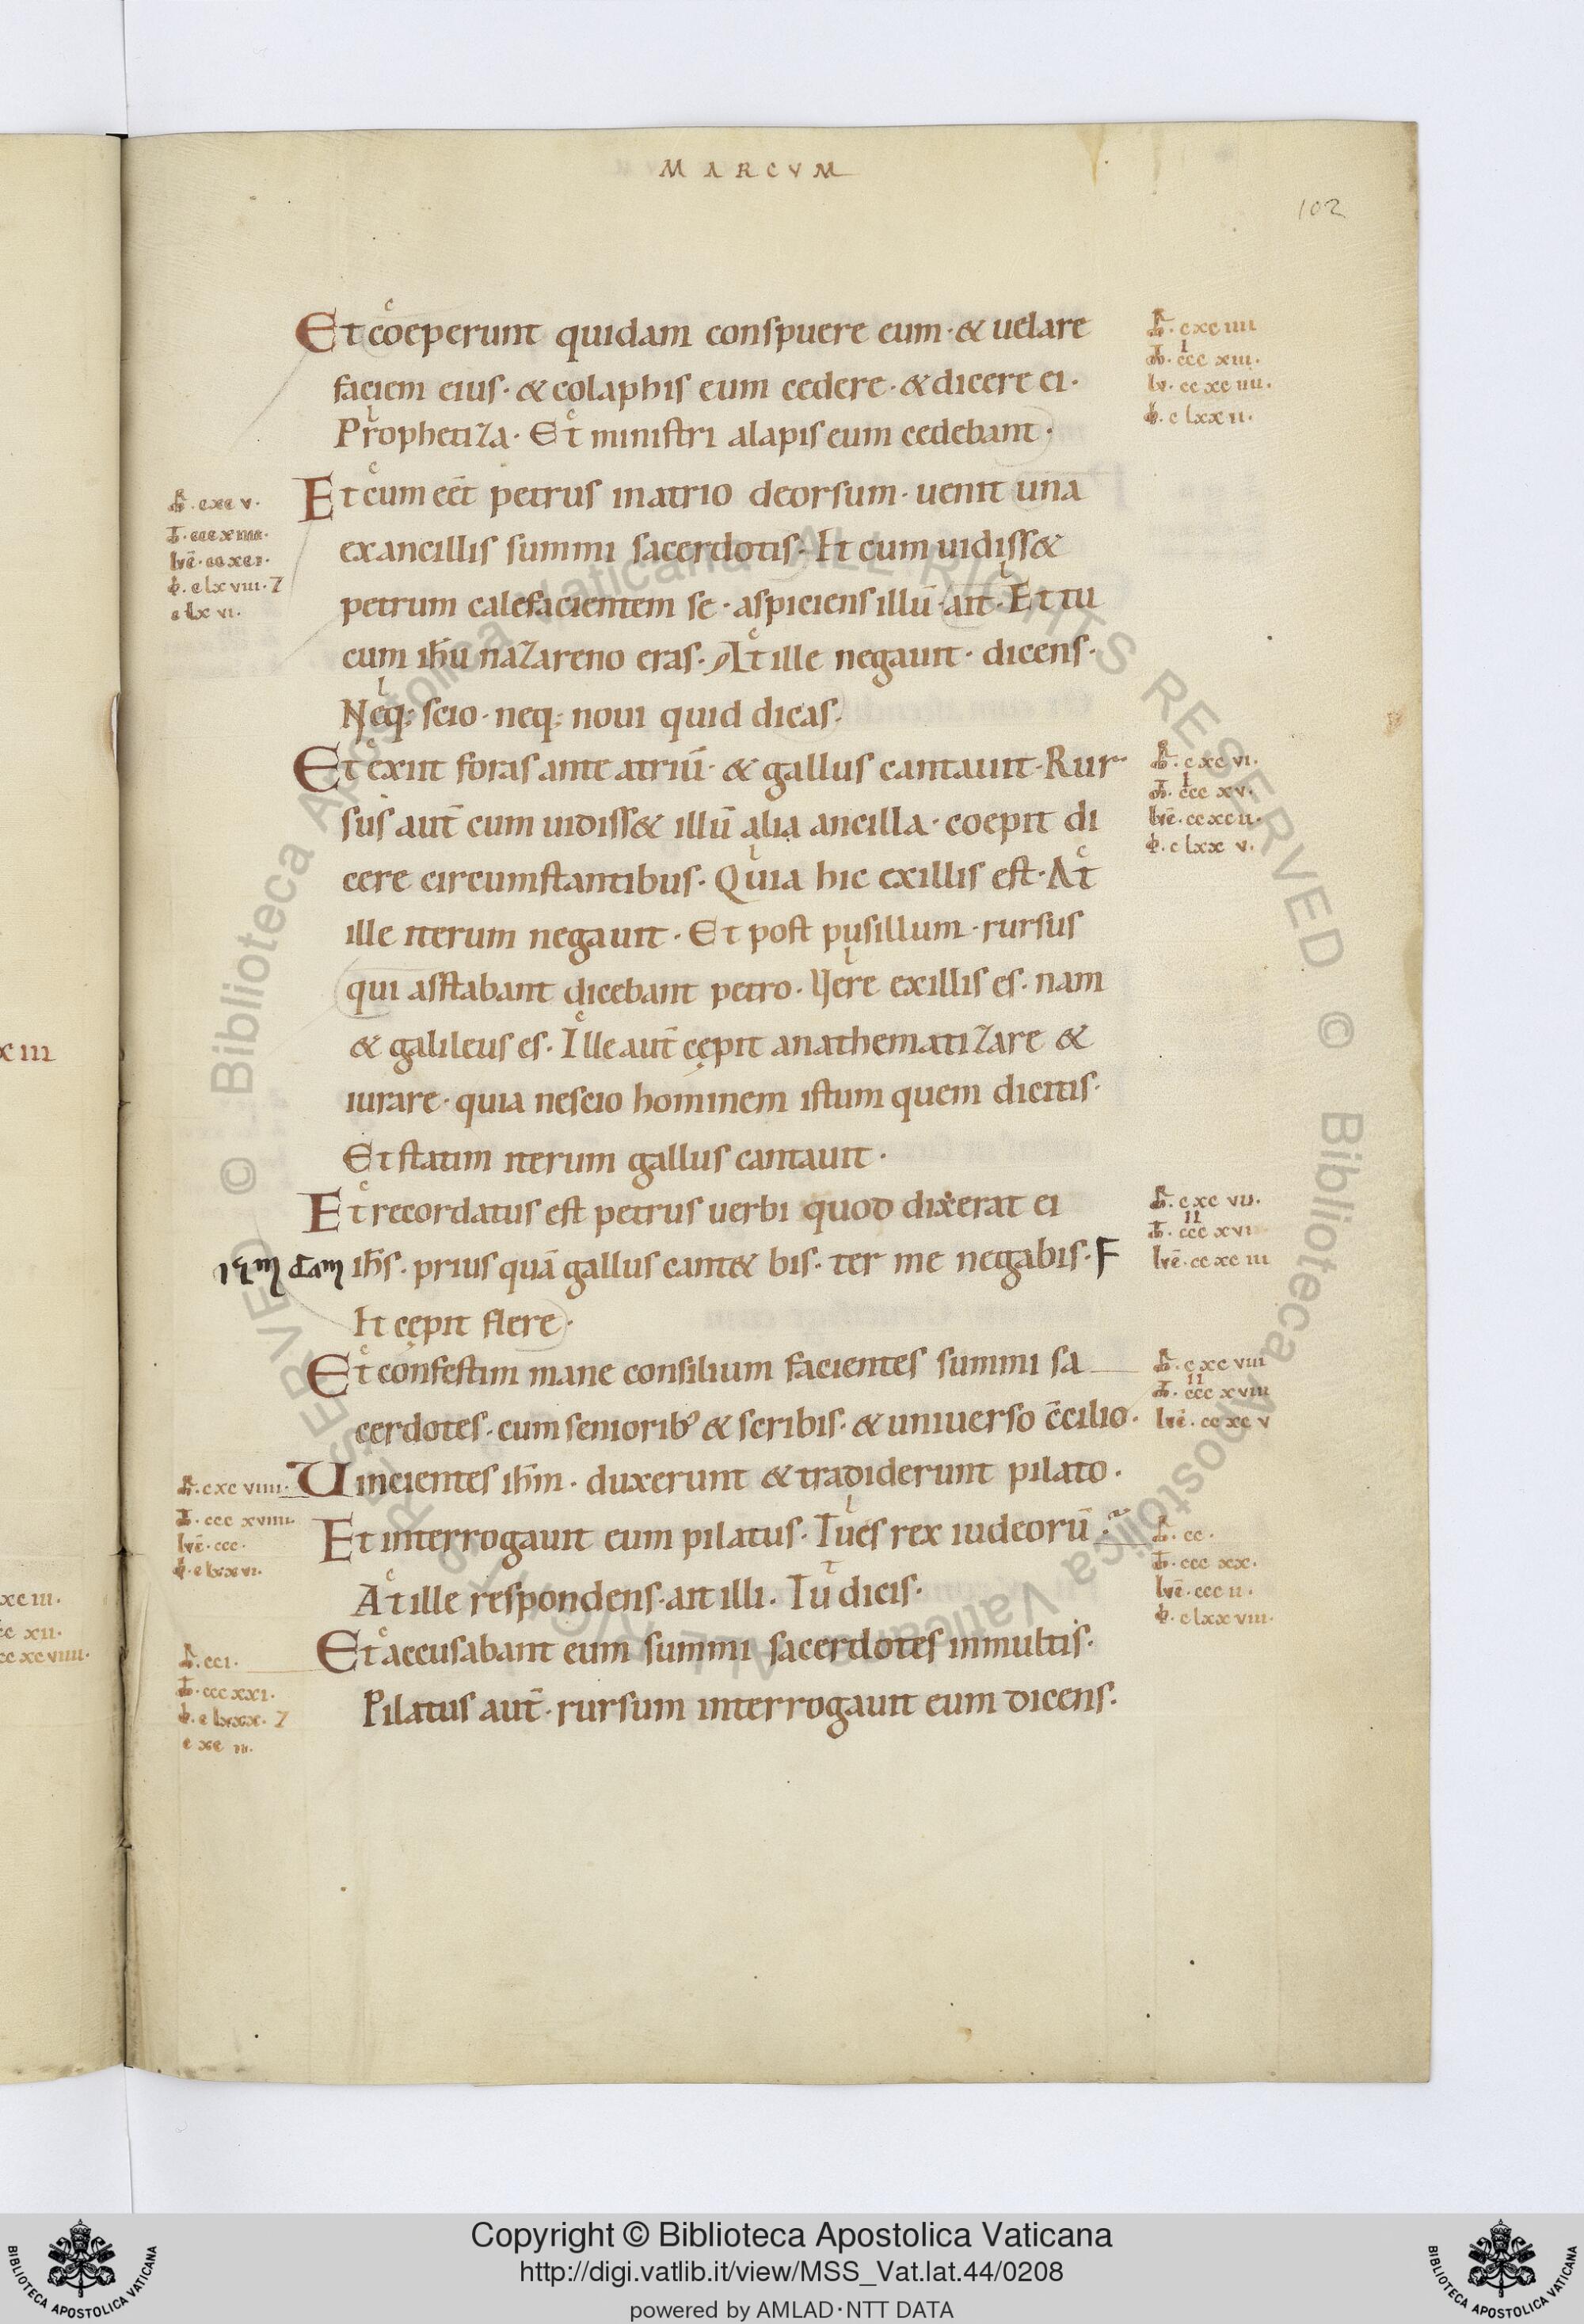 MARCVM
102
Et coeperunt quidam conspuere eum · & uelare
faciem eius · & colaphis eum cedere · & dicere ei ·
Prophetiza · Et ministri alapis eum cedebant ·
Et cum eēt petrus inatrio deorsum · uenit una
exancillis summi sacerdotis · Et cum uidiss&
petrum calefacientem se · aspiciens illū · ait · Et tu
cum ihu nazareno eras · At ille negauit · dicens ·
Neq; scio · neq; noui quid dicas ·
Et exiit foras ante atriū · & gallus cantauit · Rur
sus aut̄ cum uidiss& illū alia ancilla · coepit di
cere circumstantibus · Quia hic exillis est · At
ille iterum negauit · Et post pusillum · rursus
qui asstabant dicebant petro · Uere exillis es · nam
& galileus es · Ille aut̄ cępit anathematizare &
iurare · quia nescio hominem istum quem dicitis ·
Et statim iterum gallus cantauit ·
Et recordatus est petrus uerbi quod dixerat ei
ihs · prius quā gallus cant& bis · ter me negabis ·
Et cępit flere ·
Et confestim mane consilium facientes summi sa
cerdotes · cum seniorib' & scribis · & uniuerso c̄cilio ·
Uincientes ihm · duxerunt & tradiderunt pilato ·
Et interrogauit eum pilatus · Tu es rex iudeorū ·
At ille respondens · ait illi · Tu dicis ·
Et accusabant eum summi sacerdotes inmultis ·
Pilatus aut̄ · rursum interrogauit eum dicens ·
cxc iiii
ccc xiii ·
cc xc iiii ·
c lxx ii ·
cxc v ·
c lx viii · 7
c lx vi ·
c xc vi ·
ccc xv ·
cc xc ii ·
c lxx v ·
c xc vii ·
ccc xvi
cc xc iii
c xc viii
ccc xviii
cc xc v
cxc viiii ·
ccc xviiii ·
ccc ·
c lxxvi ·
cc ·
ccc xx ·
ccc ii ·
c lxx viii ·
cci ·
ccc xxi ·
Copyright © Biblioteca Apostolica Vaticana
http://digi.vatlib.it/view/MSS_Vat.lat.44/0208
powered by AMLAD·NTT DATA
BIBLIOTECA APOSTOLICA VATICANA
BIBLIOTECA APOSTOLICA VATICANA